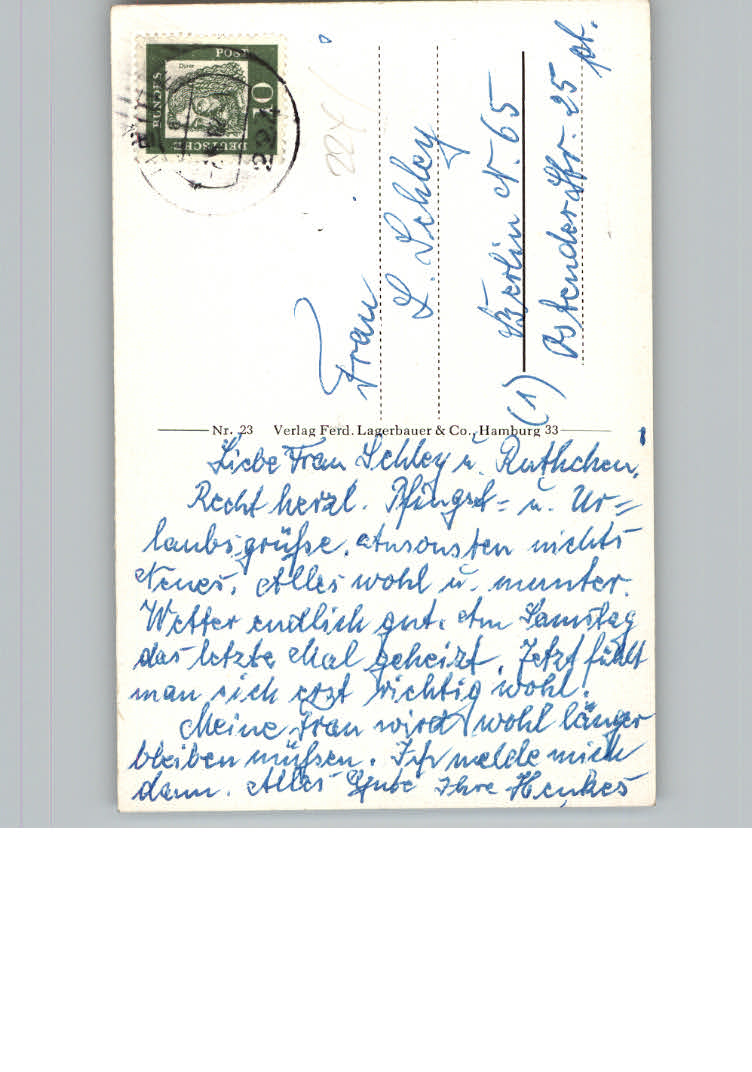 DEUTSCHE
BUNDES
POST
Dürer
10
224/
Frau
L. Schley
(1) Berlin N. 65
Ostender Str. 25 pt.
Nr. 23 Verlag Ferd. Lagerbauer & Co., Hamburg 33
Liebe Frau Schley u. Ruthchen,
Recht herzl. Pfingst= u. Ur=
laubsgrüße. Ansonsten nichts
Neues. Alles wohl u. munter.
Wetter endlich gut. Am Samstag
das letzte Mal geheizt. Jetzt fühlt
man sich erst richtig wohl.
Meine Frau wird wohl länger
bleiben müßen. Ich melde mich
dann. Alles Gute Ihre Henkes